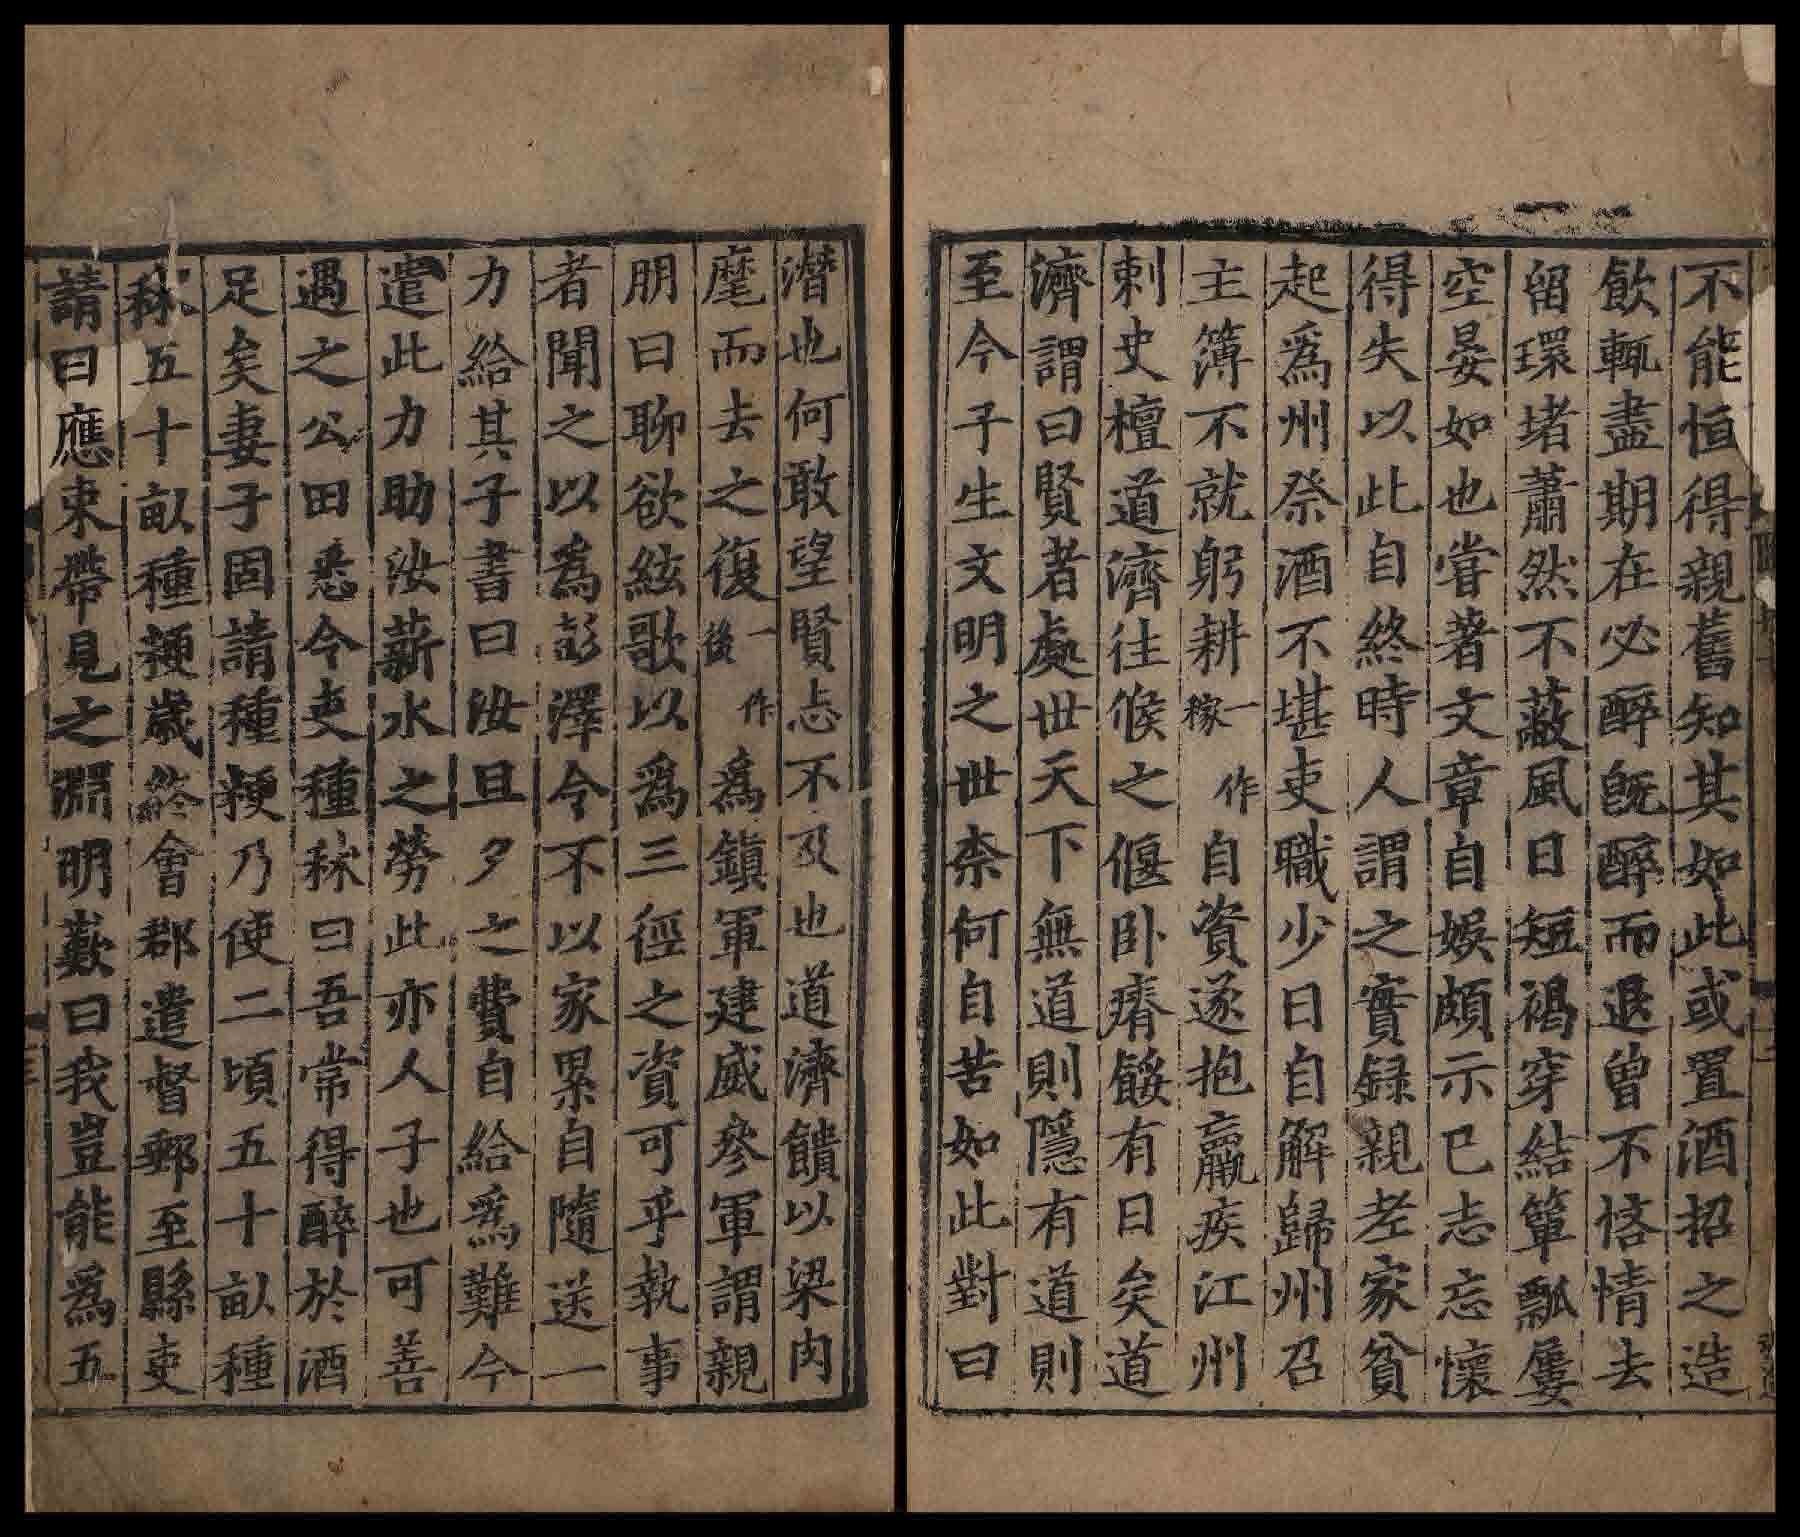 不能恒得親舊知其如此或置酒招之造
飲輒盡期在必醉旣醉而退曾不悋情去
留環堵蕭然不蔽風日短褐穿結簞瓢屢
空晏如也甞著文章自娛頗示已志忘懷
得失以此自終時人謂之實録親老家貧
起爲州祭酒不堪吏職少日自解歸州召
主簿不就躬耕一作稼自資遂抱羸疾江州
刺史檀道濟往候之偃卧瘠餒有日矣道
濟謂曰賢者處世天下無道則隱有道則
至今子生文明之世柰何自苦如此對曰
潛也何敢望賢志不及也道濟饋以梁肉
麾而去之復一作後爲鎮軍建威參軍謂親
朋曰聊欲絃歌以爲三徑之資可乎執事
者聞之以爲彭澤令不以家累自隨送一
力給其子書曰汝旦夕之費自給爲難今
遣此力助汝薪水之勞此亦人子也可善
遇之公田悉令吏種秫曰吾常得醉於酒
足矣妻子固請種粳乃使二頃五十畝種
秫五十畝種粳歲終會郡遣督郵至縣吏
請曰應束帶見之淵明歎曰我豈能爲五